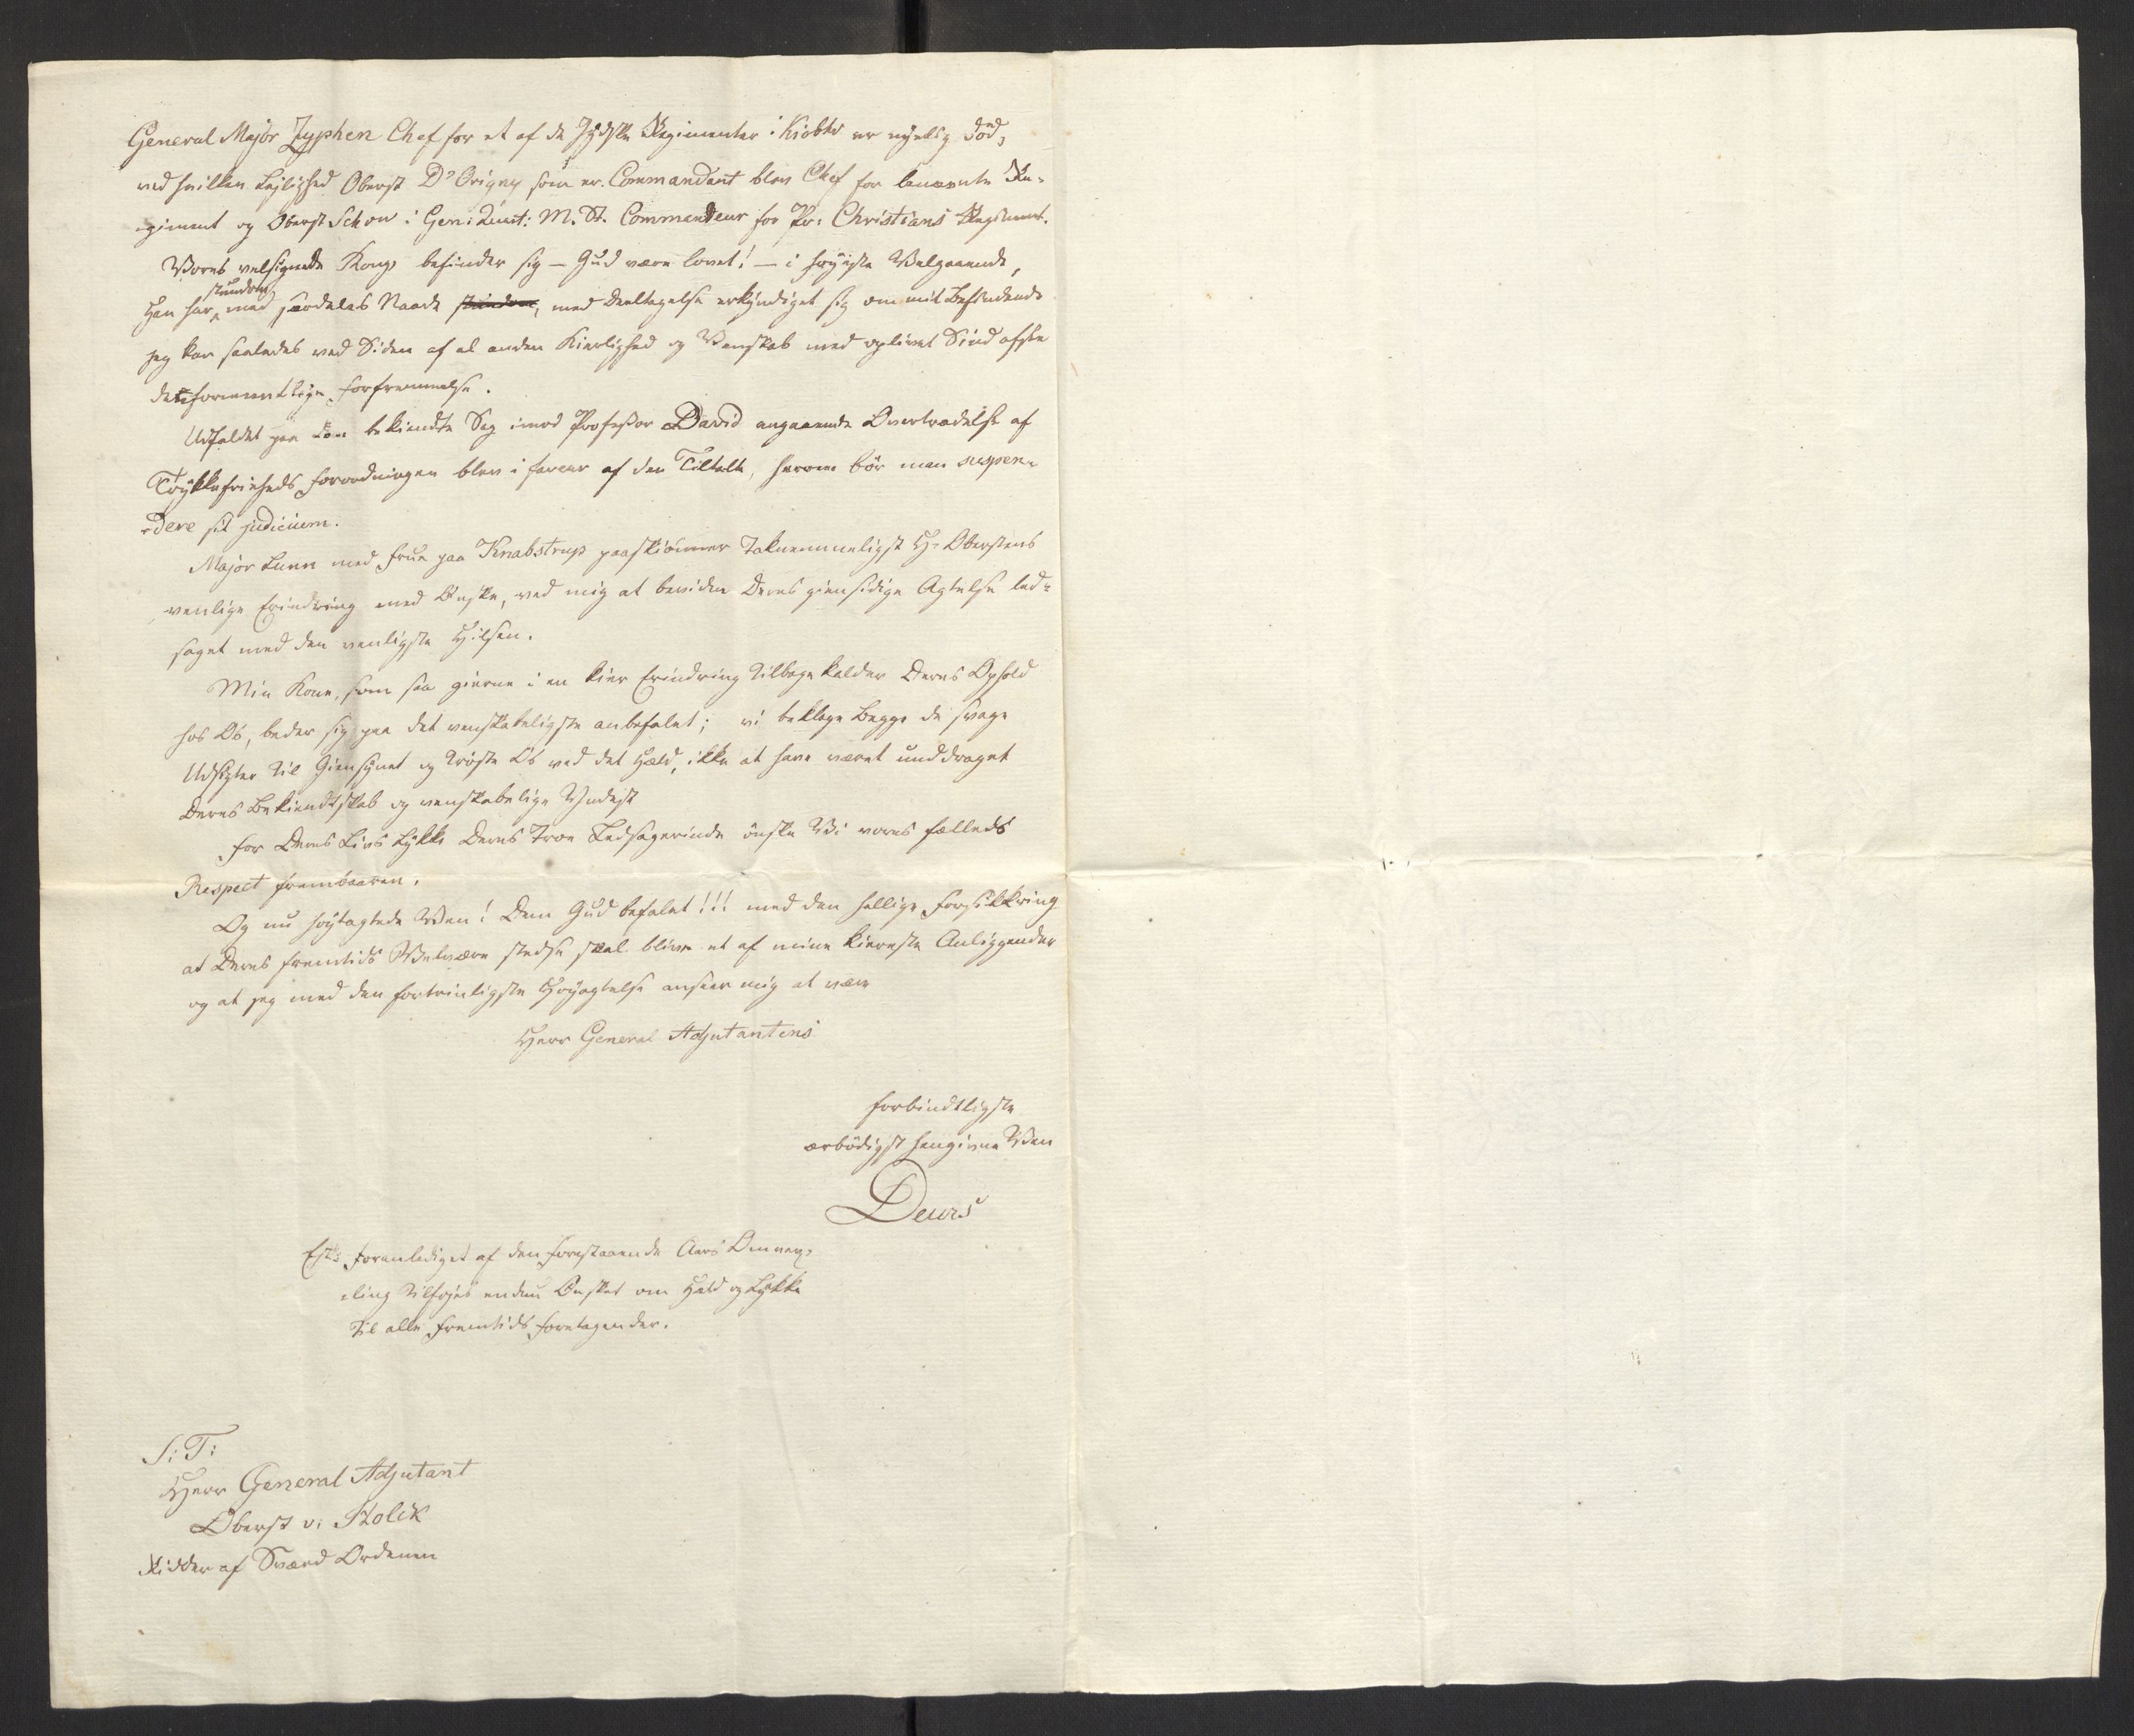 General Major Zyphen Chef for et af de Jydske Regimenter i Kiøbhv er nyelig død,
ved hvilken Lejlighed Oberst D'Origny som er Commandant blev Chef for benævnte Re-
giment og Oberst Schow i Gen: Quart: M. St. Commandeur for Pr: Christians Regiment.
Vores velsignede Konge befinder sig – Gud være lovet! – i høyeste Velgaaende,
Han har stundom med særdeles Naade stundom, med Deeltagelse erkyndiget sig om mit Befindende
jeg kan saaledes ved Siden af al anden Kierlighed og Venskab med oplivet Sind
formeentlige Forfremmelse.
Udfaldet paa den bekiendte Sag imod Professor David angaaende Overtrædelse af
Trykkefriheds Forordningen blev i faveur af den Tiltalte, herom bör man suspen-
-dere sit judicium.
Major Lunn med Frue paa Knabstrup paaskiönner Taknemmeligst Hr Oberstens
venlige Erindring med Ønske, ved mig at bevidne Deres giensidige Agtelse led-
saget med den venligste Hilsen.
Min Kone, som saa gierne i en kier Erindring tilbage kalder Deres Ophold
hos Os, beder sig paa det venskabeligste anbefalet; vi beklage Begge de svage
Udsigter til Giensynet og tröste Os ved det Held, ikke at have været unddraget
Deres Bekiendtskab og venskabelige Yndest
For Deres Livs Lykke Deres Troe Ledsagerinde önske Vi vores fælleds
Respect frembaaren.
Og nu höytagtede Ven! Dem Gud befalet!!! med den hellige Forsikkring
at Deres fremtids Velvære stedse skal blive et af mine kiereste Anliggender
og at jeg med den fortrinligste Höyagtelse anseer mig at være
Herr General Adjutantens
forbindtligste
ærbödigst hengivne Ven
Deurs
Foranlediget af den forestaaende Aars Omvex-
-ling tilföjes endnu Ønsket om Held og Lykke
til alle Fremtids Foretagender.
S: T:
Herr General Adjutant
Oberst v: Holck
Ridder af Sværd Ordenen